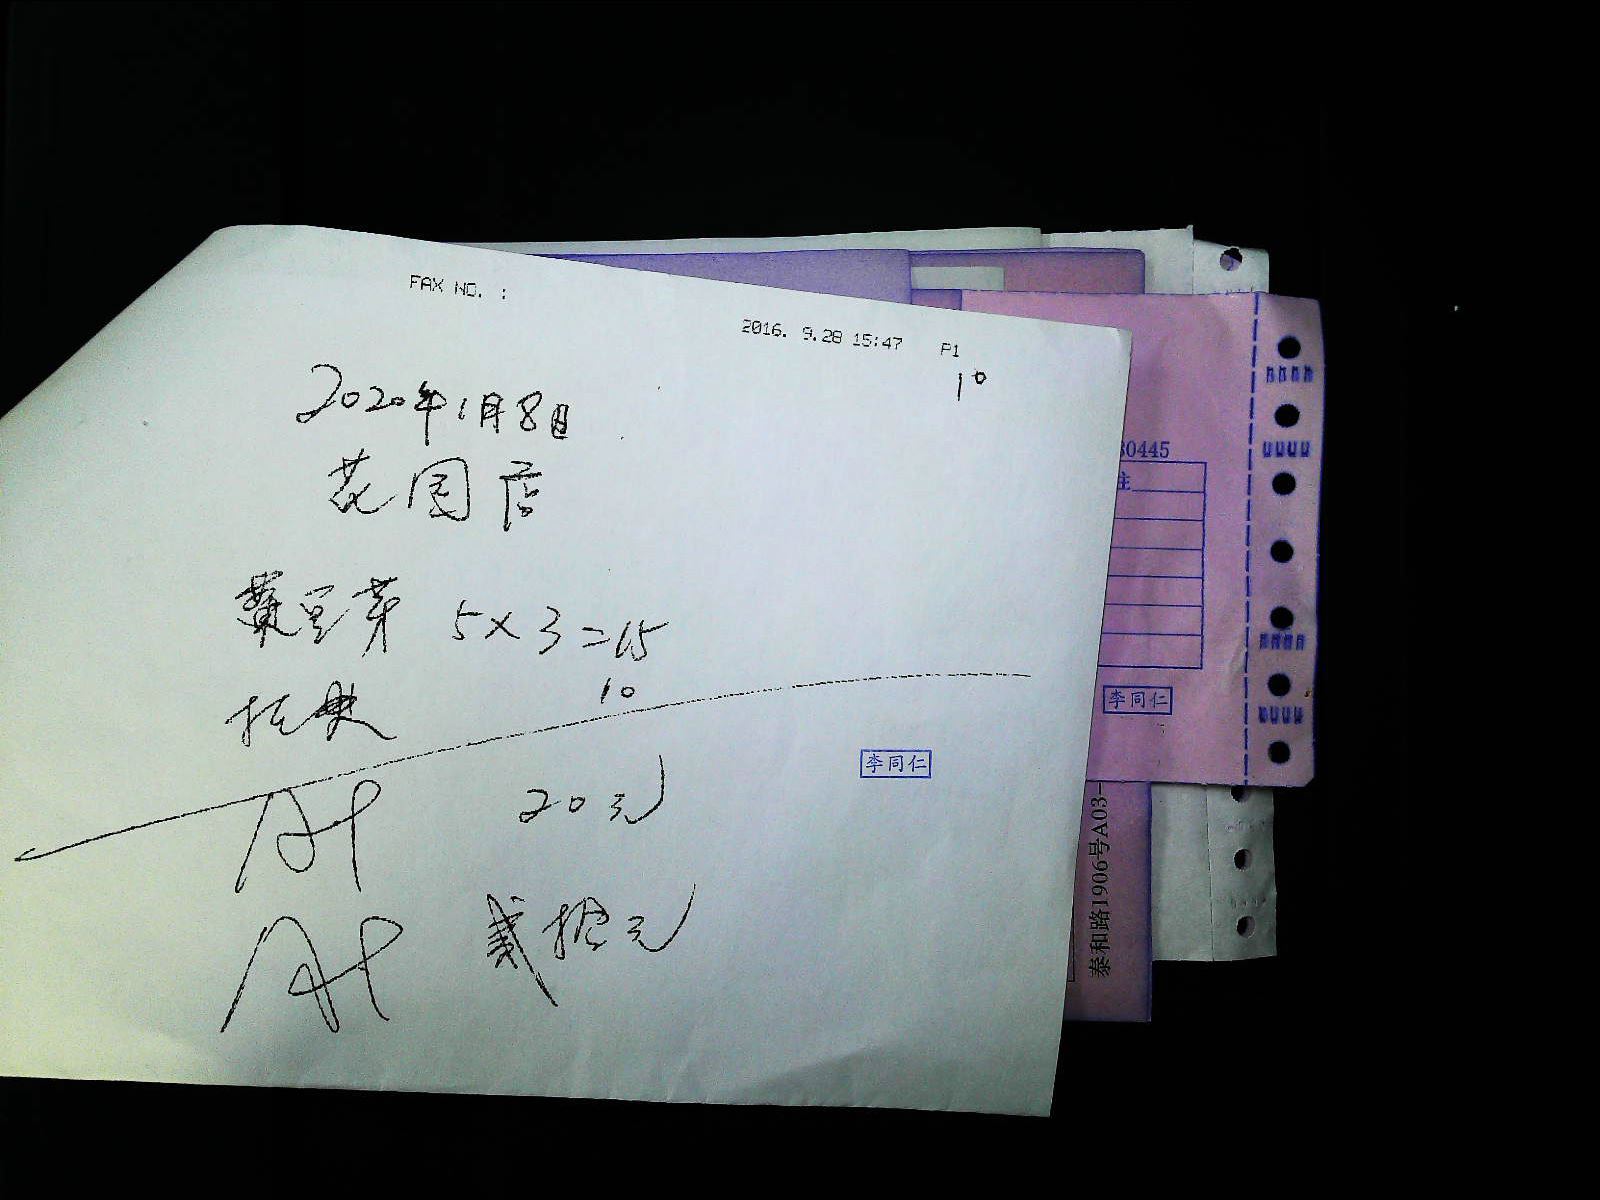 FAX NO. :
2016. 9.28 15:47 P1
10
2020年1月8日
花园店
黄豆芽 5×3=15
10
共 20元
共 贰拾元
李同仁
30445
注
李同仁
泰和路1906号A03-